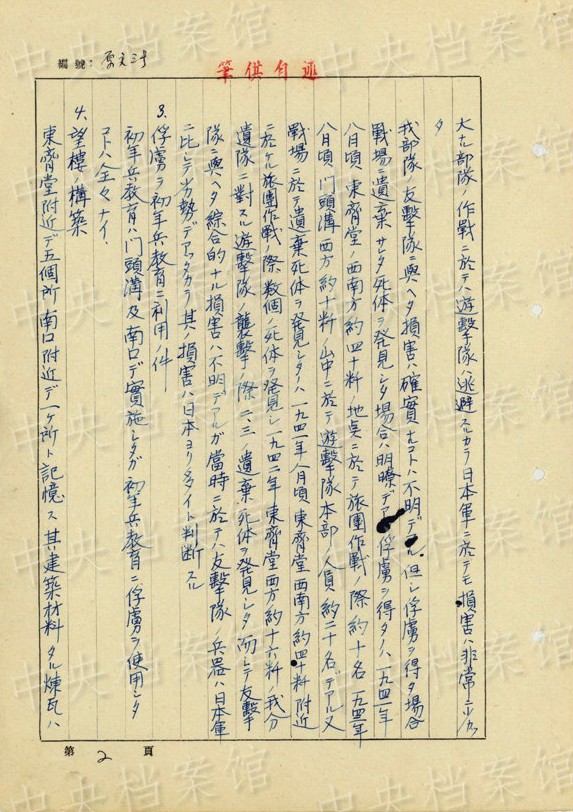 編號：原文三号
筆供自述
大ナル部隊ノ作戰ニ於テハ遊擊隊ハ逃避スルカラ日本軍ニ於テモ損害ハ非常ニ少カッ
タ
我部隊ノ友擊隊ニ與ヘタ損害ハ確實ナコトハ不明デアル 但シ俘虜ヲ得タ場合
戰場ニ遺棄サレタ死体ヲ発見シタ場合ハ明瞭デアル 俘虜ヲ得タノハ一九四一年
八月頃東齊堂ノ西南方約四十粁ノ地点ニ於テ旅團作戰ノ際約十名 一九四一年
八月頃門頭溝西方約十粁ノ山中ニ於テ遊擊隊本部ノ人員約二十名デアル又
戰場ニ於テ遺棄死体ヲ発見シタノハ一九四一年八月頃東齊堂西南方約四十粁附近
ニ於ケル旅團作戰ノ際数個ノ死体ヲ発見シ一九四二年東齊堂西方約十六粁ノ我分
遺隊ニ對スル遊擊隊ノ襲擊ノ際二、三ノ遺棄死体ヲ発見シタ 而シテ友擊
隊ニ與ヘタ綜合的ナル損害ハ不明デアルガ當時ニ於テハ友擊隊ノ兵器ハ日本軍
ニ比シテ劣勢デアッタカラ其ノ損害ハ日本ヨリ多イト判断スル
3. 俘虜ヲ初年兵教育ニ利用ノ件
初年兵教育ハ門頭溝及南口デ實施シタガ初年兵教育ニ俘虜ヲ使用シタ
コトハ全々ナイ.
4. 望樓ノ構築
東齊堂附近デ五個所 南口附近デ一ケ所ト記憶ス 其建築材料タル煉瓦ハ
第2頁
中央档案馆
中央档案馆
中央档案馆